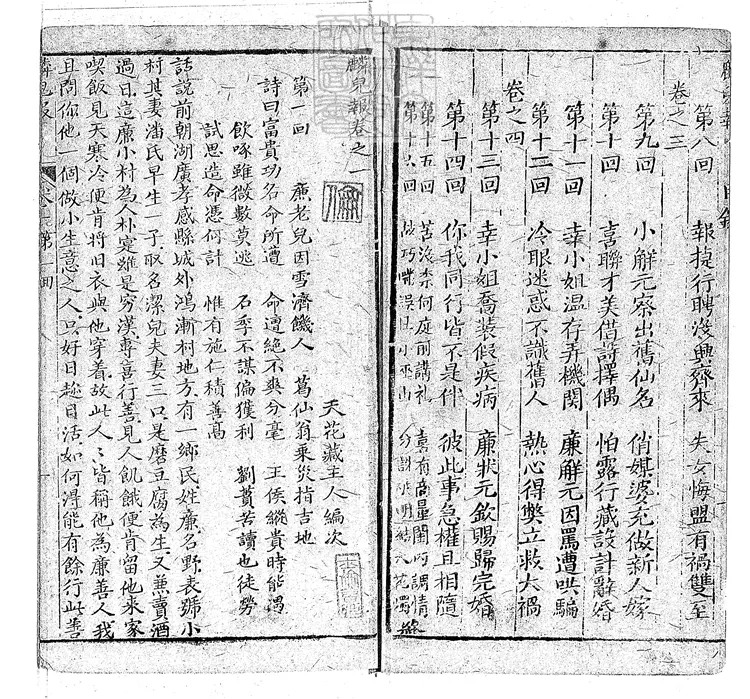 第八回 報捷行聘沒興齊來 失女悔盟有禍雙至
卷之三
第九回 小解元察出舊仙名 俏媒婆充做新人嫁
第十回 喜聯才美借詩擇偶 怕露行藏設計辭婚
第十一回 幸小姐温存弄機関 廉解元因罵遭哄騙
第十二回 冷眼迷惑不識舊人 熱心得樂立救大禍
卷之四
第十三回 幸小姐喬裝假疾病 廉狀元欽賜歸完婚
第十四回 你我同行皆不是伴 彼此事急權且相隨
第十五回 苦没柰何庭前講礼 喜有商量閨内調情
第十六回
麟兒報卷之一
天花藏主人編次
第一回 廉老兒因雪濟饑人 葛仙翁乘災指吉地
詩曰富貴功名命所遭 命遭絶不爽分毫 王侯縱貴時能遇
飲啄雖微數莫逃 石季不謀偏獲利 劉蕡苦讀也徒勞
試思造命憑何計 惟有施仁積善高
話說前朝湖廣孝感縣城外鴻漸村地方有一鄉民姓廉名野表號小
村其妻潘氏早生一子取名潔兒夫妻三口只是磨豆腐為生又兼賣酒
過日這廉小村為人朴實雖是窮漢專喜行善見人飢餓便肯留他來家
喫飯見天寒冷便肯將旧衣與他穿着故此人〻皆稱他為廉善人我
且問你他一個做小生意之人只好日趂日活如何得能有餘行此善